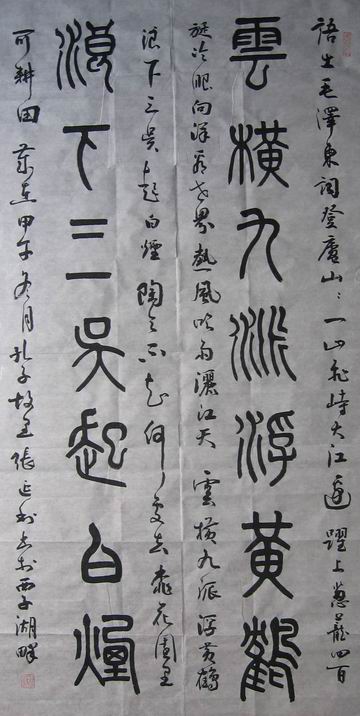 語出毛澤東詞登廬山：一山飛峙大江邊躍上蔥蘢四百
雲橫九派浮黃鶴
旋冷眼向洋看世界熱風吹雨灑江天雲橫九派浮黃鶴
浪下三吳起白煙陶令不知何處去桃花園里
浪下三吳起白煙
可耕田歲在甲午冬月孔子故里張延利書於西子湖畔